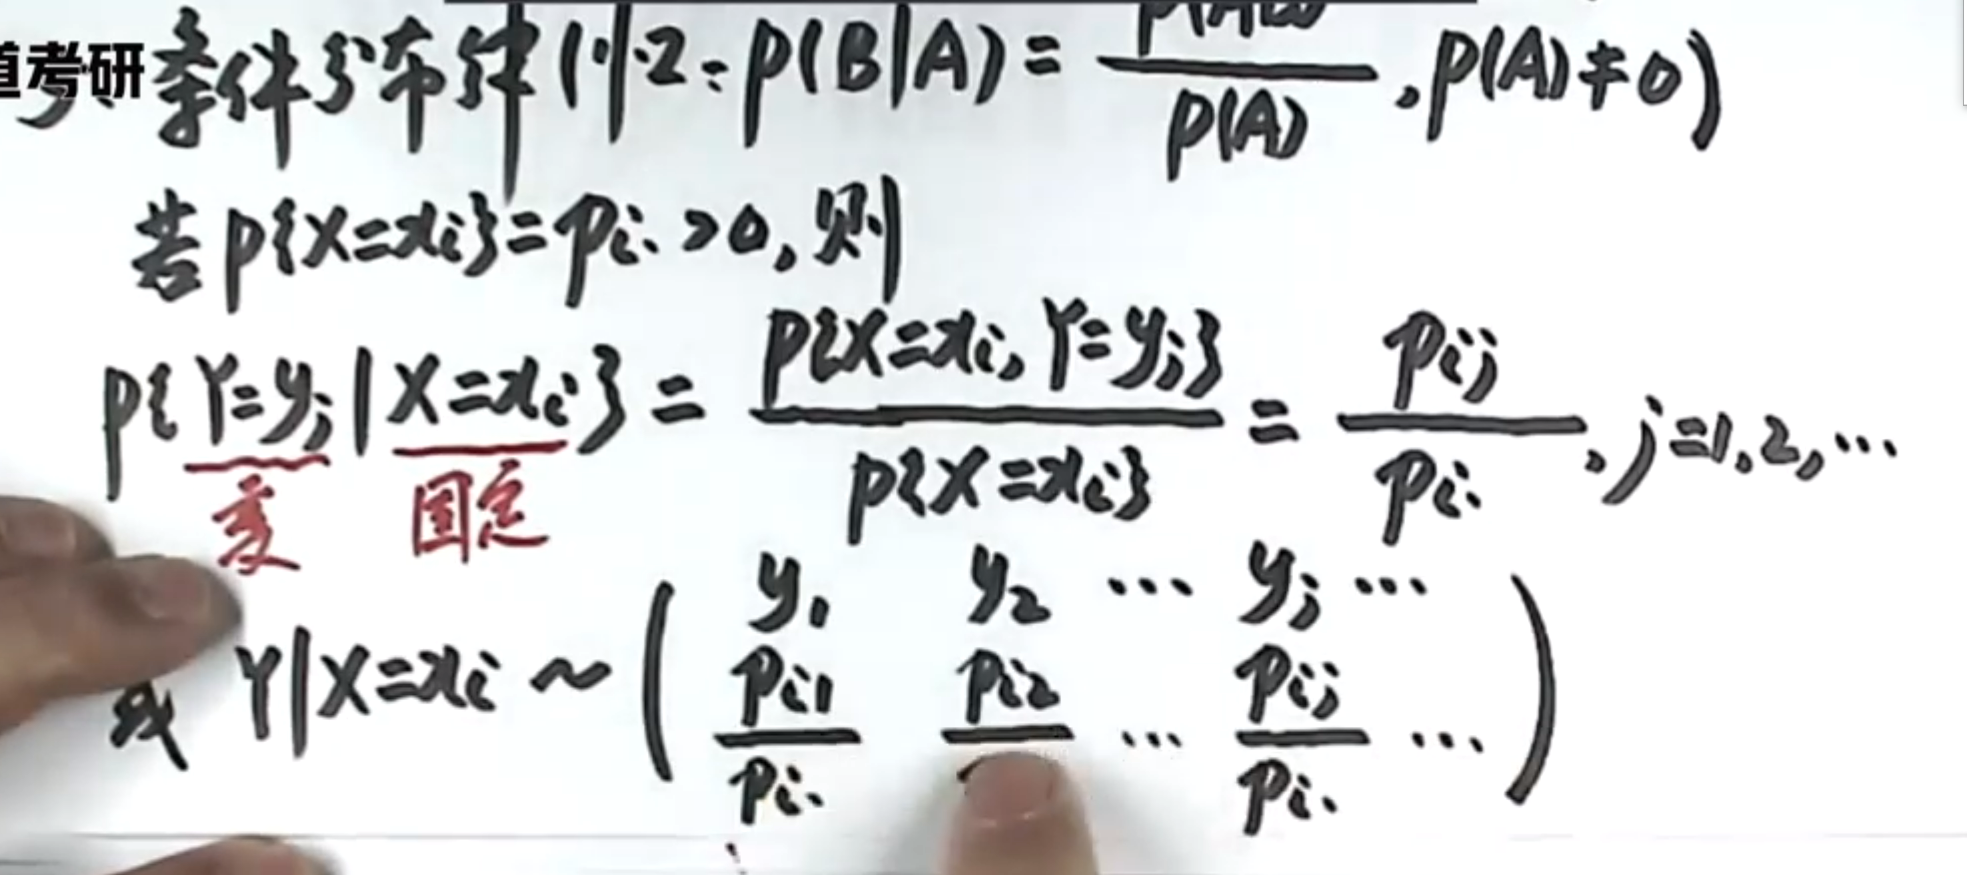 道考研
3. 条件分布律 (忆: P(B|A) = P(AB)/P(A), P(A)≠0)
若 P{X=xi}=Pi.>0, 则
P{Y=yj|X=xi} = P{X=xi, Y=yj}/P{X=xi} = Pij/Pi., j=1,2,…
变 固定
或 Y|X=xi ~ ( y1 y2 … yj …
Pi1/Pi. Pi2/ … Pij/Pi. … )